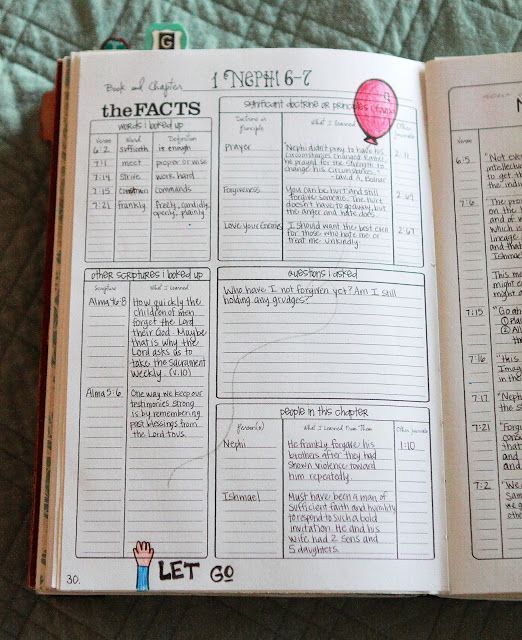 G
Book and Chapter
1 Nephi 6-7
the FACTS
words i looked up
Verse Word Definition
6:2 sufficeth is enough
7:1 meet proper or wise
7:14 strive work hard
7:15 constrain commands
7:21 frankly freely, candidly,
openly, plainly
other scriptures i looked up
Scripture What I Learned
Alma 46:8 How quickly the
children of men
forget the Lord
their God. Maybe
that is why the
Lord asks us to
take the Sacrament
weekly. (v.10)
Alma 5:6 One way we keep our
testimonies strong
is by remembering
past blessings from
the Lord to us.
significant doctrine or principles i found
Doctrine or
Principle What I Learned Other
Prayer "Nephi didn't pray to have his
circumstances changed. Rather,
he prayed for the strength to
change his circumstances."
-David A. Bednar
Forgiveness You can be hurt and still
forgive someone. The hurt
doesn't have to go away, but
the anger and hate does. 2:67
Love your Enemies I should want the best even
for those who hate me or
treat me unkindly. 2:67
questions i asked
Who have I not forgiven yet? Am I still
holding any grudges?
people in this chapter
Person(s) What I Learned From Them Other
Nephi He frankly forgave his
brothers after they had
shown violence toward
him repeatedly. 1:10
Ishmael Must have been a man of
sufficient faith and humility
to respond to such a bold
invitation. He and his
wife had 2 sons and
5 daughters.
30.
LET GO
6:5 "Not ever
intellectu
to get th
the indi
7:6 The pro
on the
and of
which is
lineage
and that
Ishmael
This m
might
came
7:15 "Go a
7:16 "This
Imag
in the
7:17 "Neph
7:21 "Forg
cons
that
and
and
7:2 "We
Sam
we g
othe